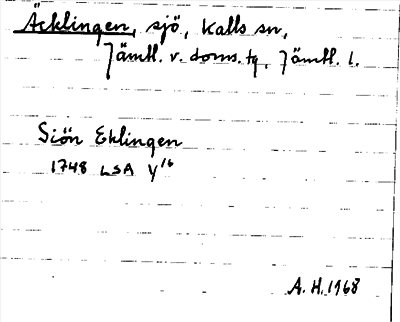 Äcklingen, sjö, Kalls sn,
Jämtl. v. doms. tg, Jämtl. l.
Siön Eklingen
1748 LSA Y16
A. H. 1968